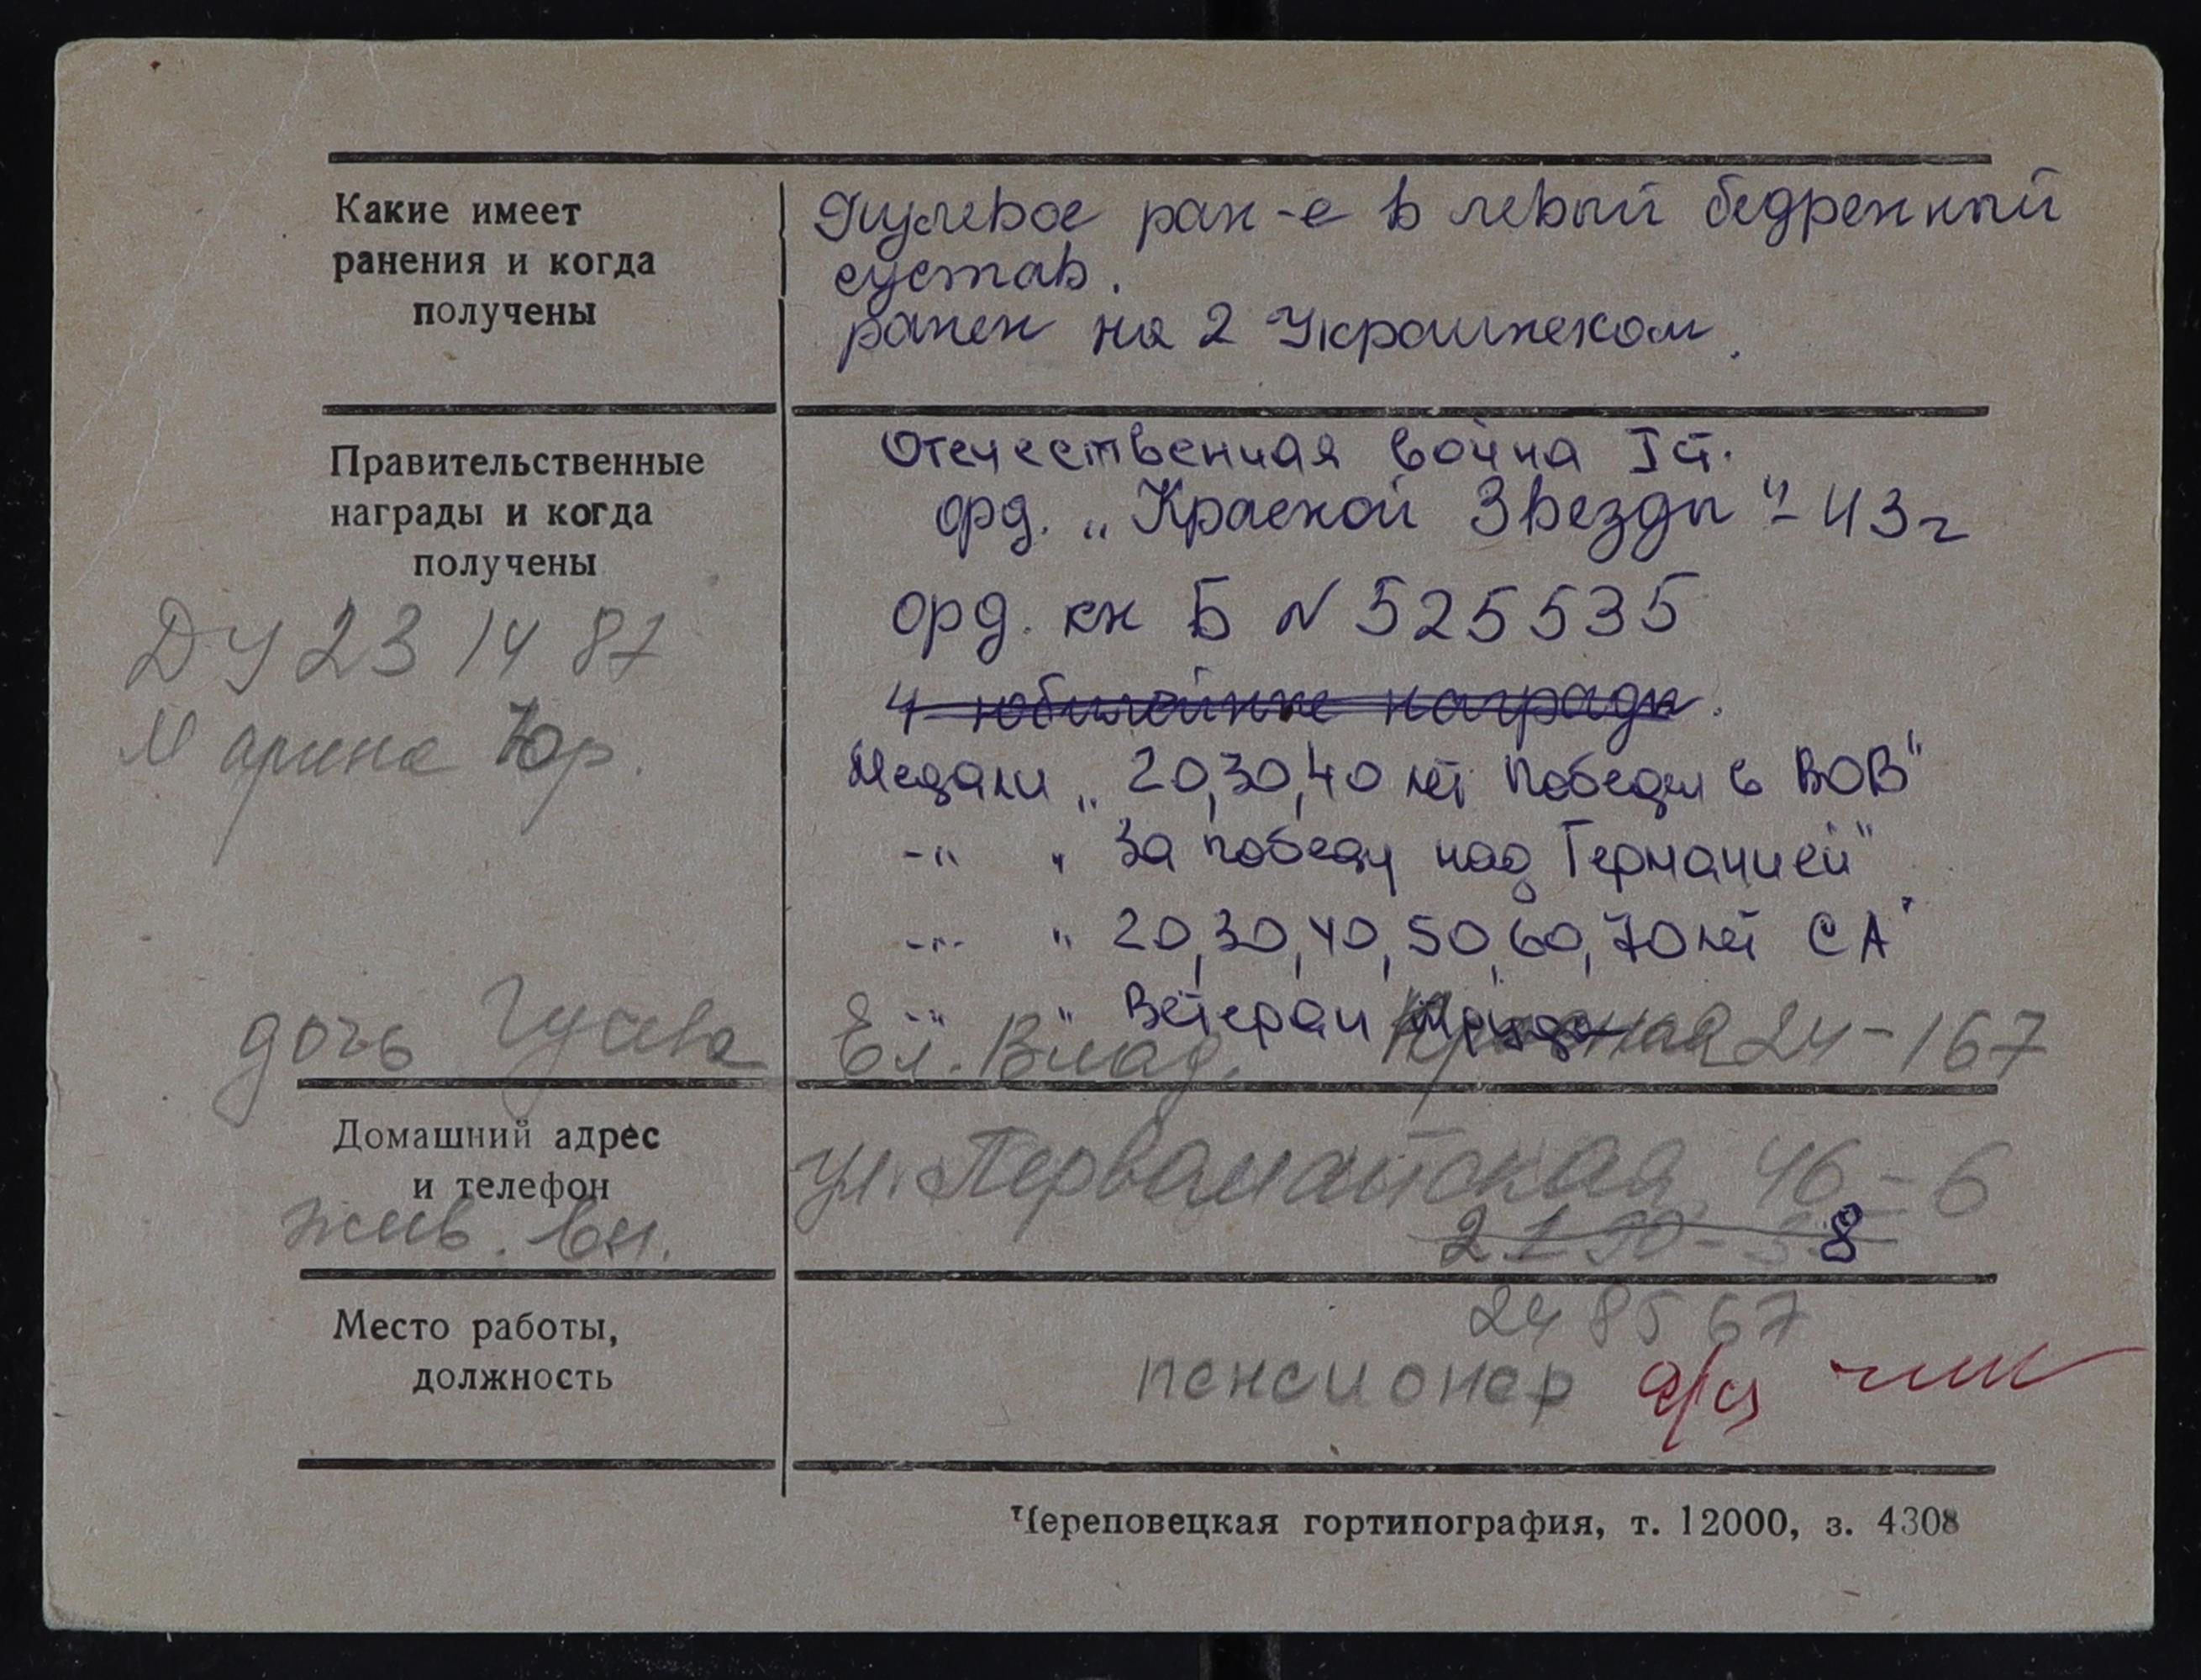 Какие имеет
ранения и когда
получены
Пулевое ран-е в левый бедренный
сустав.
ранен на 2 Украинском.
Правительственные
награды и когда
получены
Отечественная война I ст.
орд. „Красной Звезды" - 43 г
орд. кн Б N 525535
4 юбилейные награды.
Медали „20, 30, 40 лет Победы в ВОВ"
-"- „За победу над Германией"
-"- „20, 30, 40, 50, 60, 70 лет СА"
-"- " Ветеран труда
ДУ 23 14 87
Марина Юр.
дочь Гусева Ел. Влад. Красная 24-167
Домашний адрес
и телефон
жив. вн.
ул. Первомайская 46-6
Место работы,
должность
24 85 67
пенсионер
Череповецкая гортипография, т. 12000, з. 4308